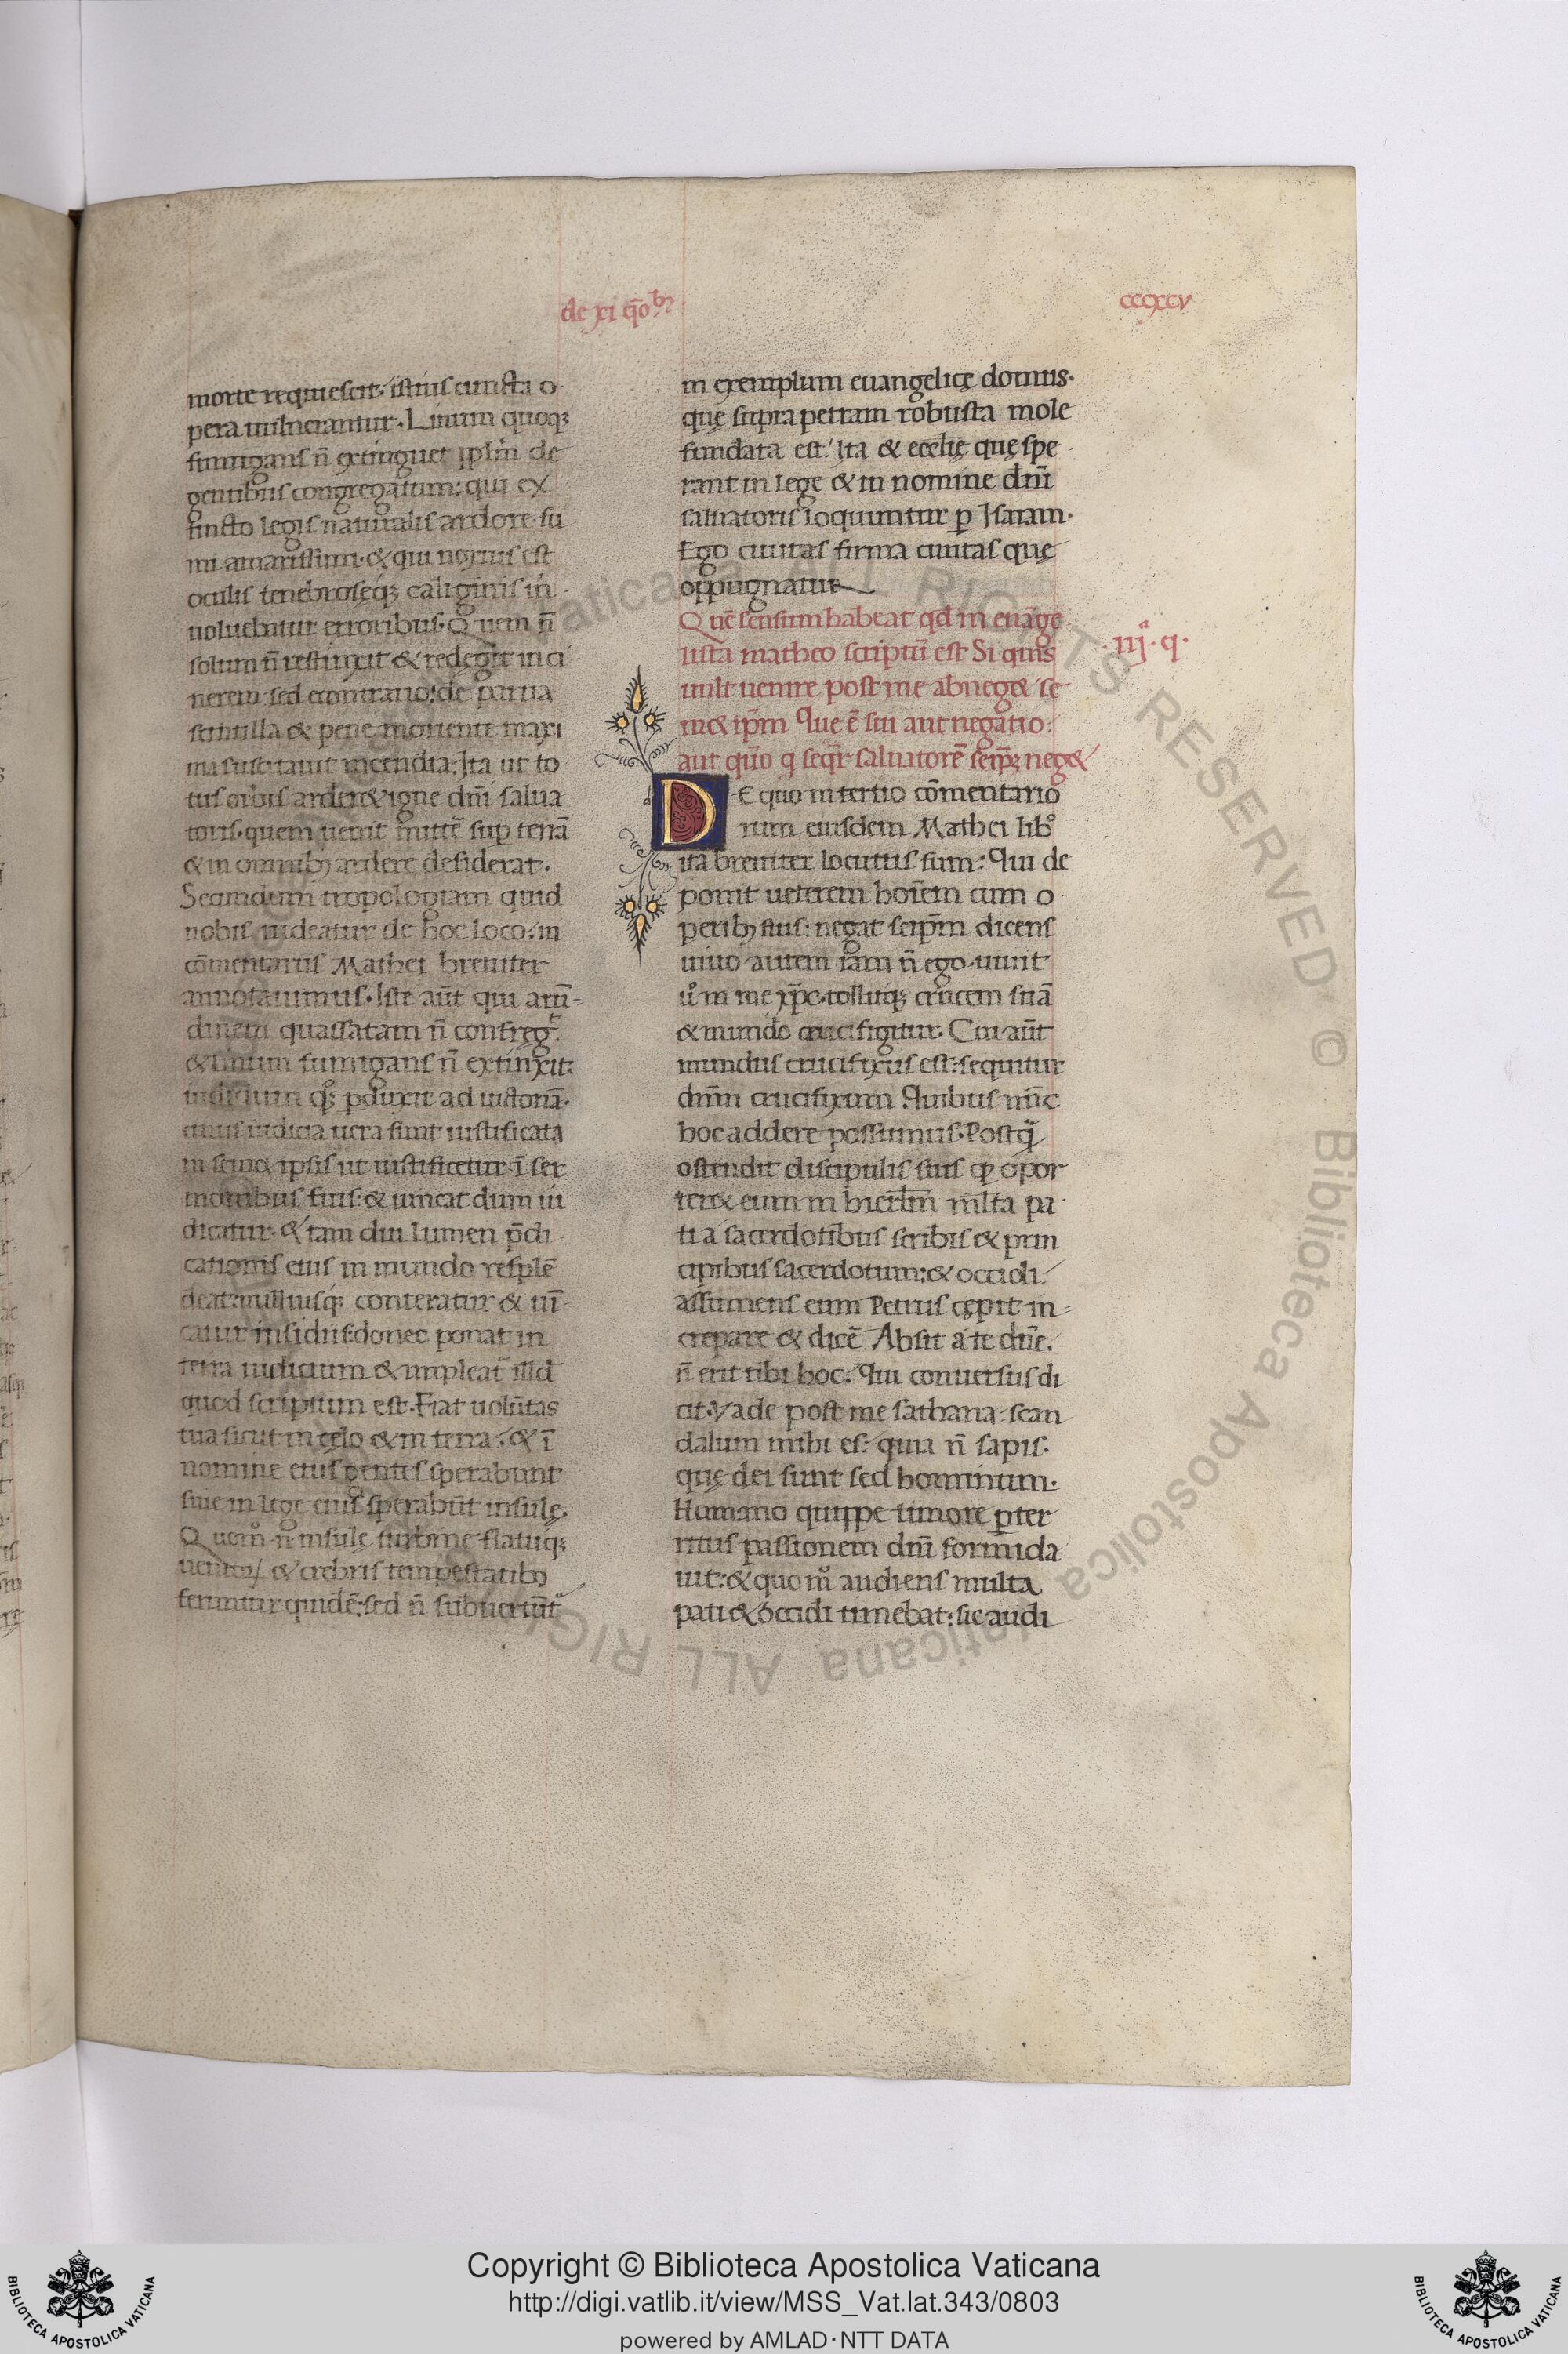 de xi q̄o⁽ᵇ⁾
cccxcv
morte requiescit. istius cuncta o
pera uulnerantur. Linum quoq;
fumigans n̄ extinguet pplm̄ de
gentibus congregatum: qui ex
tincto legis naturalis ardore fu
mi amarissimi. & qui noxius est
oculis tenebroseq; caliginis in
uoluebatur erroribus. Quem n̄
solum n̄ restinxit & redegit in ci
nerem sed econtrario: de parua
scintilla & pene moriente maxi
ma suscitauit incendia. Ita ut to
tus orbis arder& igne dn̄i salua
toris. quem uenit mittē sup terrā
& in omnib; ardere desiderat.
Secundum tropologiam quid
nobis uideatur de hoc loco: in
cōmentariis Mathei breuiter
annotauimus. Iste aūt qui arū-
dinem quassatam n̄ confreg̃.
& linum fumigans n̄ extinxit:
iudicium q̊; pduxit ad uictoriā.
cuius iudicia uera sunt iustificata
in sem& ipsis ut iustificetur ī ser
monibus suis. & uincat dum iu
dicatur. & tam diu lumen p̄di
cationis eius in mundo resplē
deat: nulliusq; conteratur & uī-
catur insidiis: donec ponat in
terra iudicium & impleat̃ illd̄
quod scriptum est. Fiat uolūtas
tua sicut in cęlo & in terra: & ī
nomine eius gentes sperabunt
siue in lege eius sperabūt insulę.
Quem̊ n̄ insulę turbine flatuq;
uentoꝝ & crebris tempestatib;
feruntur quidē: sed n̄ subuertūt̃
in exemplum euangelicę domus.
quę supra petram robusta mole
fundata est. Ita & ecclię quę spe
rant in lege & in nomine dn̄i
saluatoris loquuntur ꝑ Isaiam.
Ego ciuitas firma ciuitas quę
oppugnatur
Quē sensum habeat qd in euāge
lista matheo scriptū est Si quis
uult uenire post me abneg& se
m& ipm̄ Que ē sui aut negatio.
aut quō q seqr̄ saluatorē seip̄; neg&
iiij.ᵃ q.
De quo in tertio cōmentario
rum eiusdem Mathei libr̊
ita breuiter locutus sum: Qui de
ponit ueterem hoīem cum o
perib; suis: negat seipm̄ dicens
uiuo autem iam n̄ ego. uiuit
u̇̊ in me xp̄c. tollitq; crucem suā
& mundo crucifigitur. Cui aūt
mundus crucifixus est: sequitur
dnm̄ crucifixum. Quibus nūc
hoc addere possumus. Postq̄
ostendit discipulis suis qꝫ opor
ter& eum in hierlm̄ mlta pa
ti a sacerdotibus scribis & prin
cipibus sacerdotum: & occidi.
assumens eum Petrus cępit in-
crepare & dicē Absit a te dn̄e.
n̄ erit tibi hoc. Qui conuersus di
cit. Vade post me sathana. scan
dalum mihi es: quia n̄ sapis.
quę dei sunt sed hominum.
Humano quippe timore ꝑter
ritus passionem dn̄i formida
uit: & quo m̊ audiens multa
pati & occidi timebat: sic audi
Copyright © Biblioteca Apostolica Vaticana
http://digi.vatlib.it/view/MSS_Vat.lat.343/0803
powered by AMLAD·NTT DATA